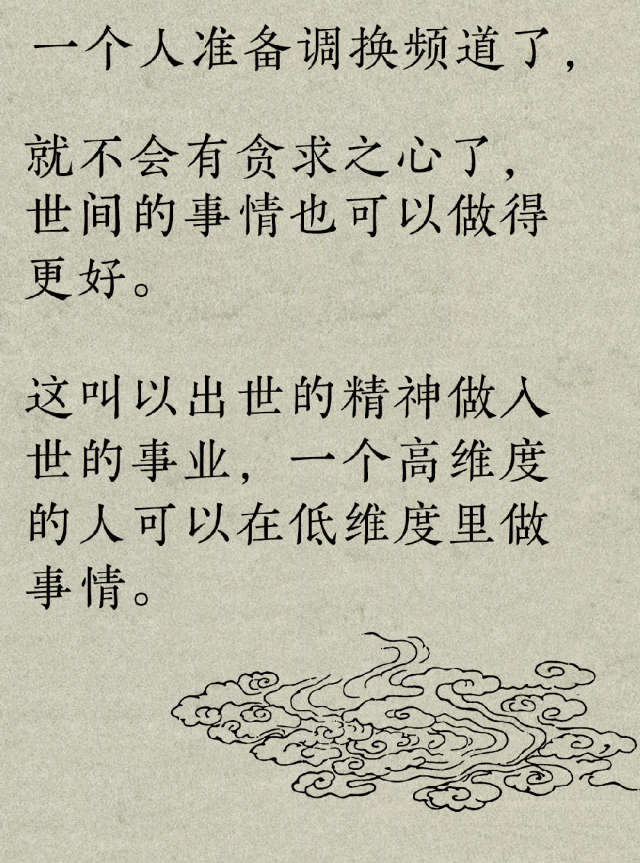 一个人准备调换频道了，
就不会有贪求之心了，
世间的事情也可以做得
更好。
这叫以出世的精神做入
世的事业，一个高维度
的人可以在低维度里做
事情。